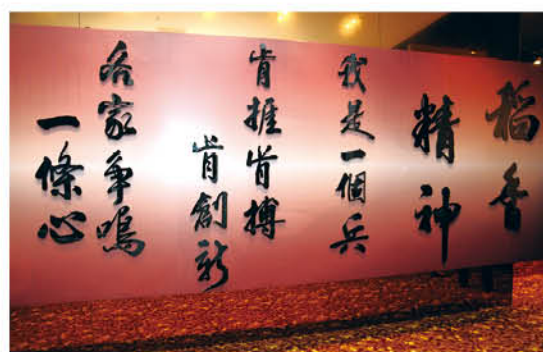 稻香
精神
我是一個兵
肯捱肯搏
肯創新
各家爭鳴
一條心